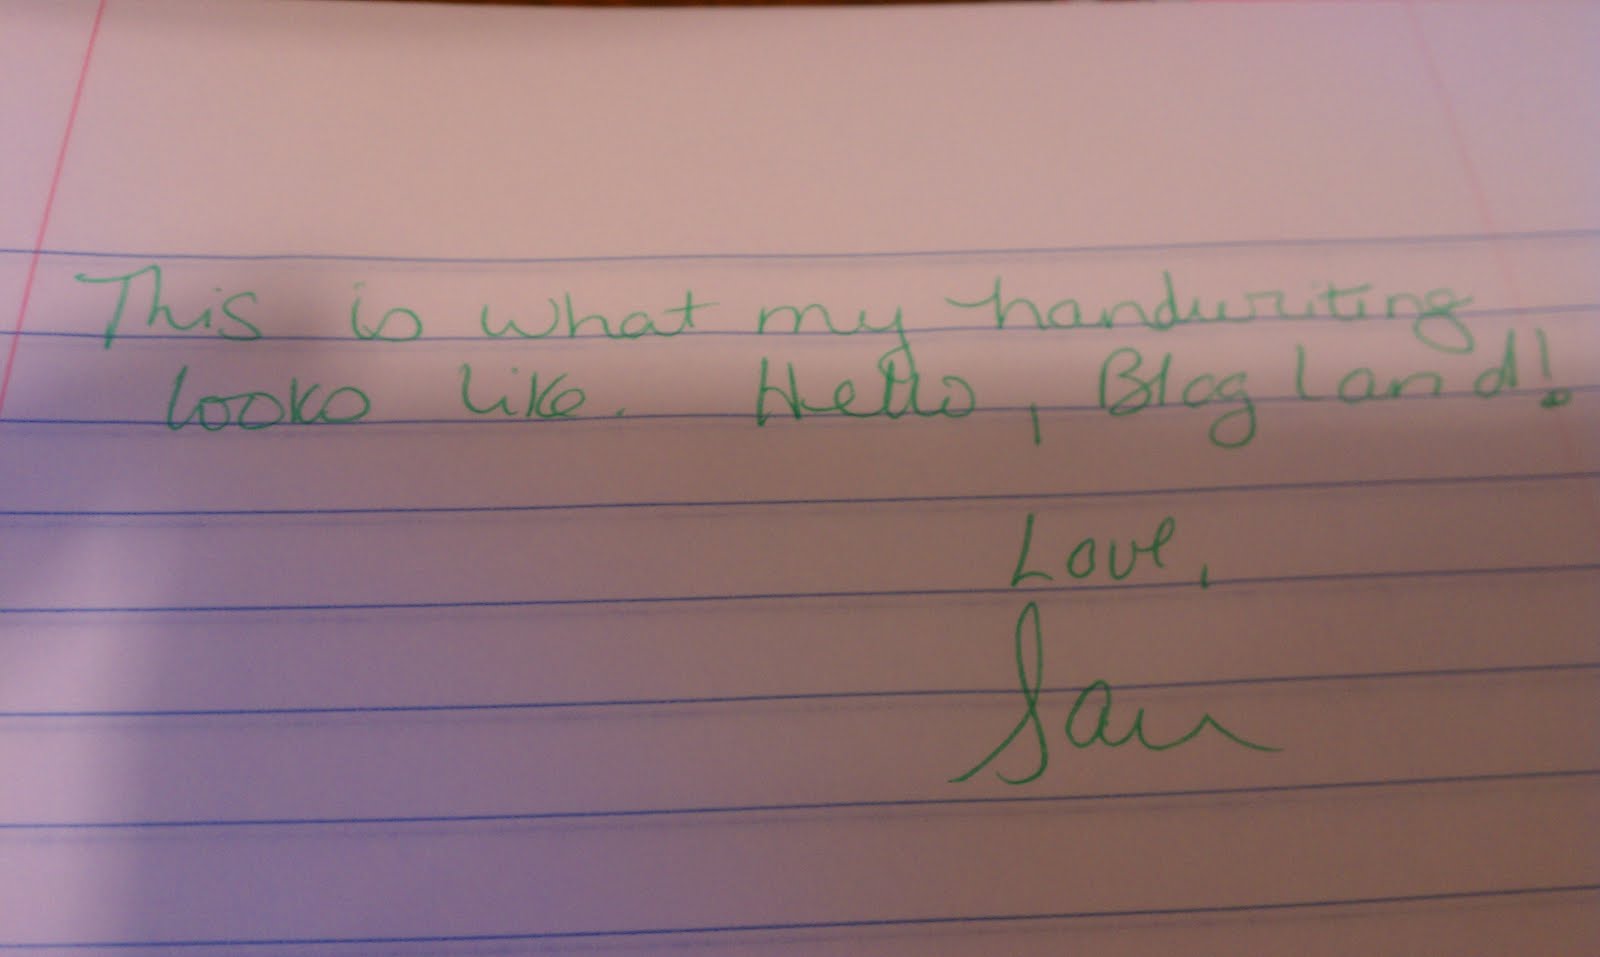 This is what my handwriting
looks like. Hello, Blog Land!
Love,
Sam